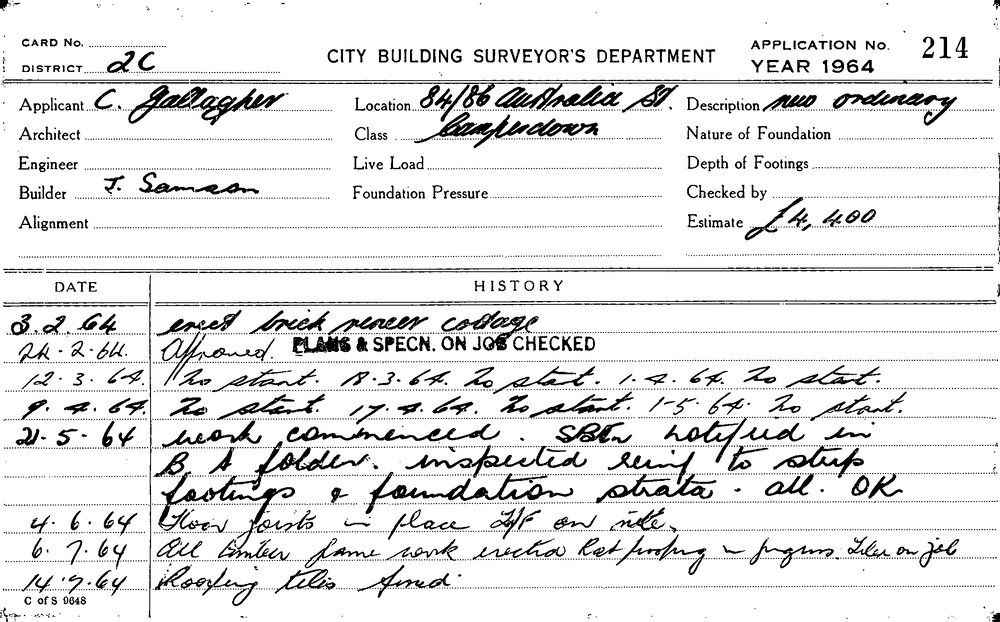 CARD No.
DISTRICT 2C
CITY BUILDING SURVEYOR'S DEPARTMENT
APPLICATION No. 214
YEAR 1964
Applicant C. Gallagher
Location 84/86 Australia St.
Description new ordinary
Architect
Class Camperdown
Nature of Foundation
Engineer
Live Load
Depth of Footings
Builder J. Samson
Foundation Pressure
Checked by
Alignment
Estimate £4,400
DATE HISTORY
3.2.64 erect brick veneer cottage
24.2.64. Approved. PLANS & SPECN. ON JOB CHECKED
12.3.64. No start. 18.3.64. No start. 1.4.64. No start.
9.4.64. No start. 17.4.64. No start. 1-5-64. No start.
21.5.64 work commenced. notified in
B. A folder. inspected reinf to strip
footings & foundation strata. all. OK
4.6.64 Floor joists in place on site.
6.7.64 All timber frame work erected Ratproofing in progress. Tiler on job
14.7.64 Roofing tiles fixed.
C of S 9648